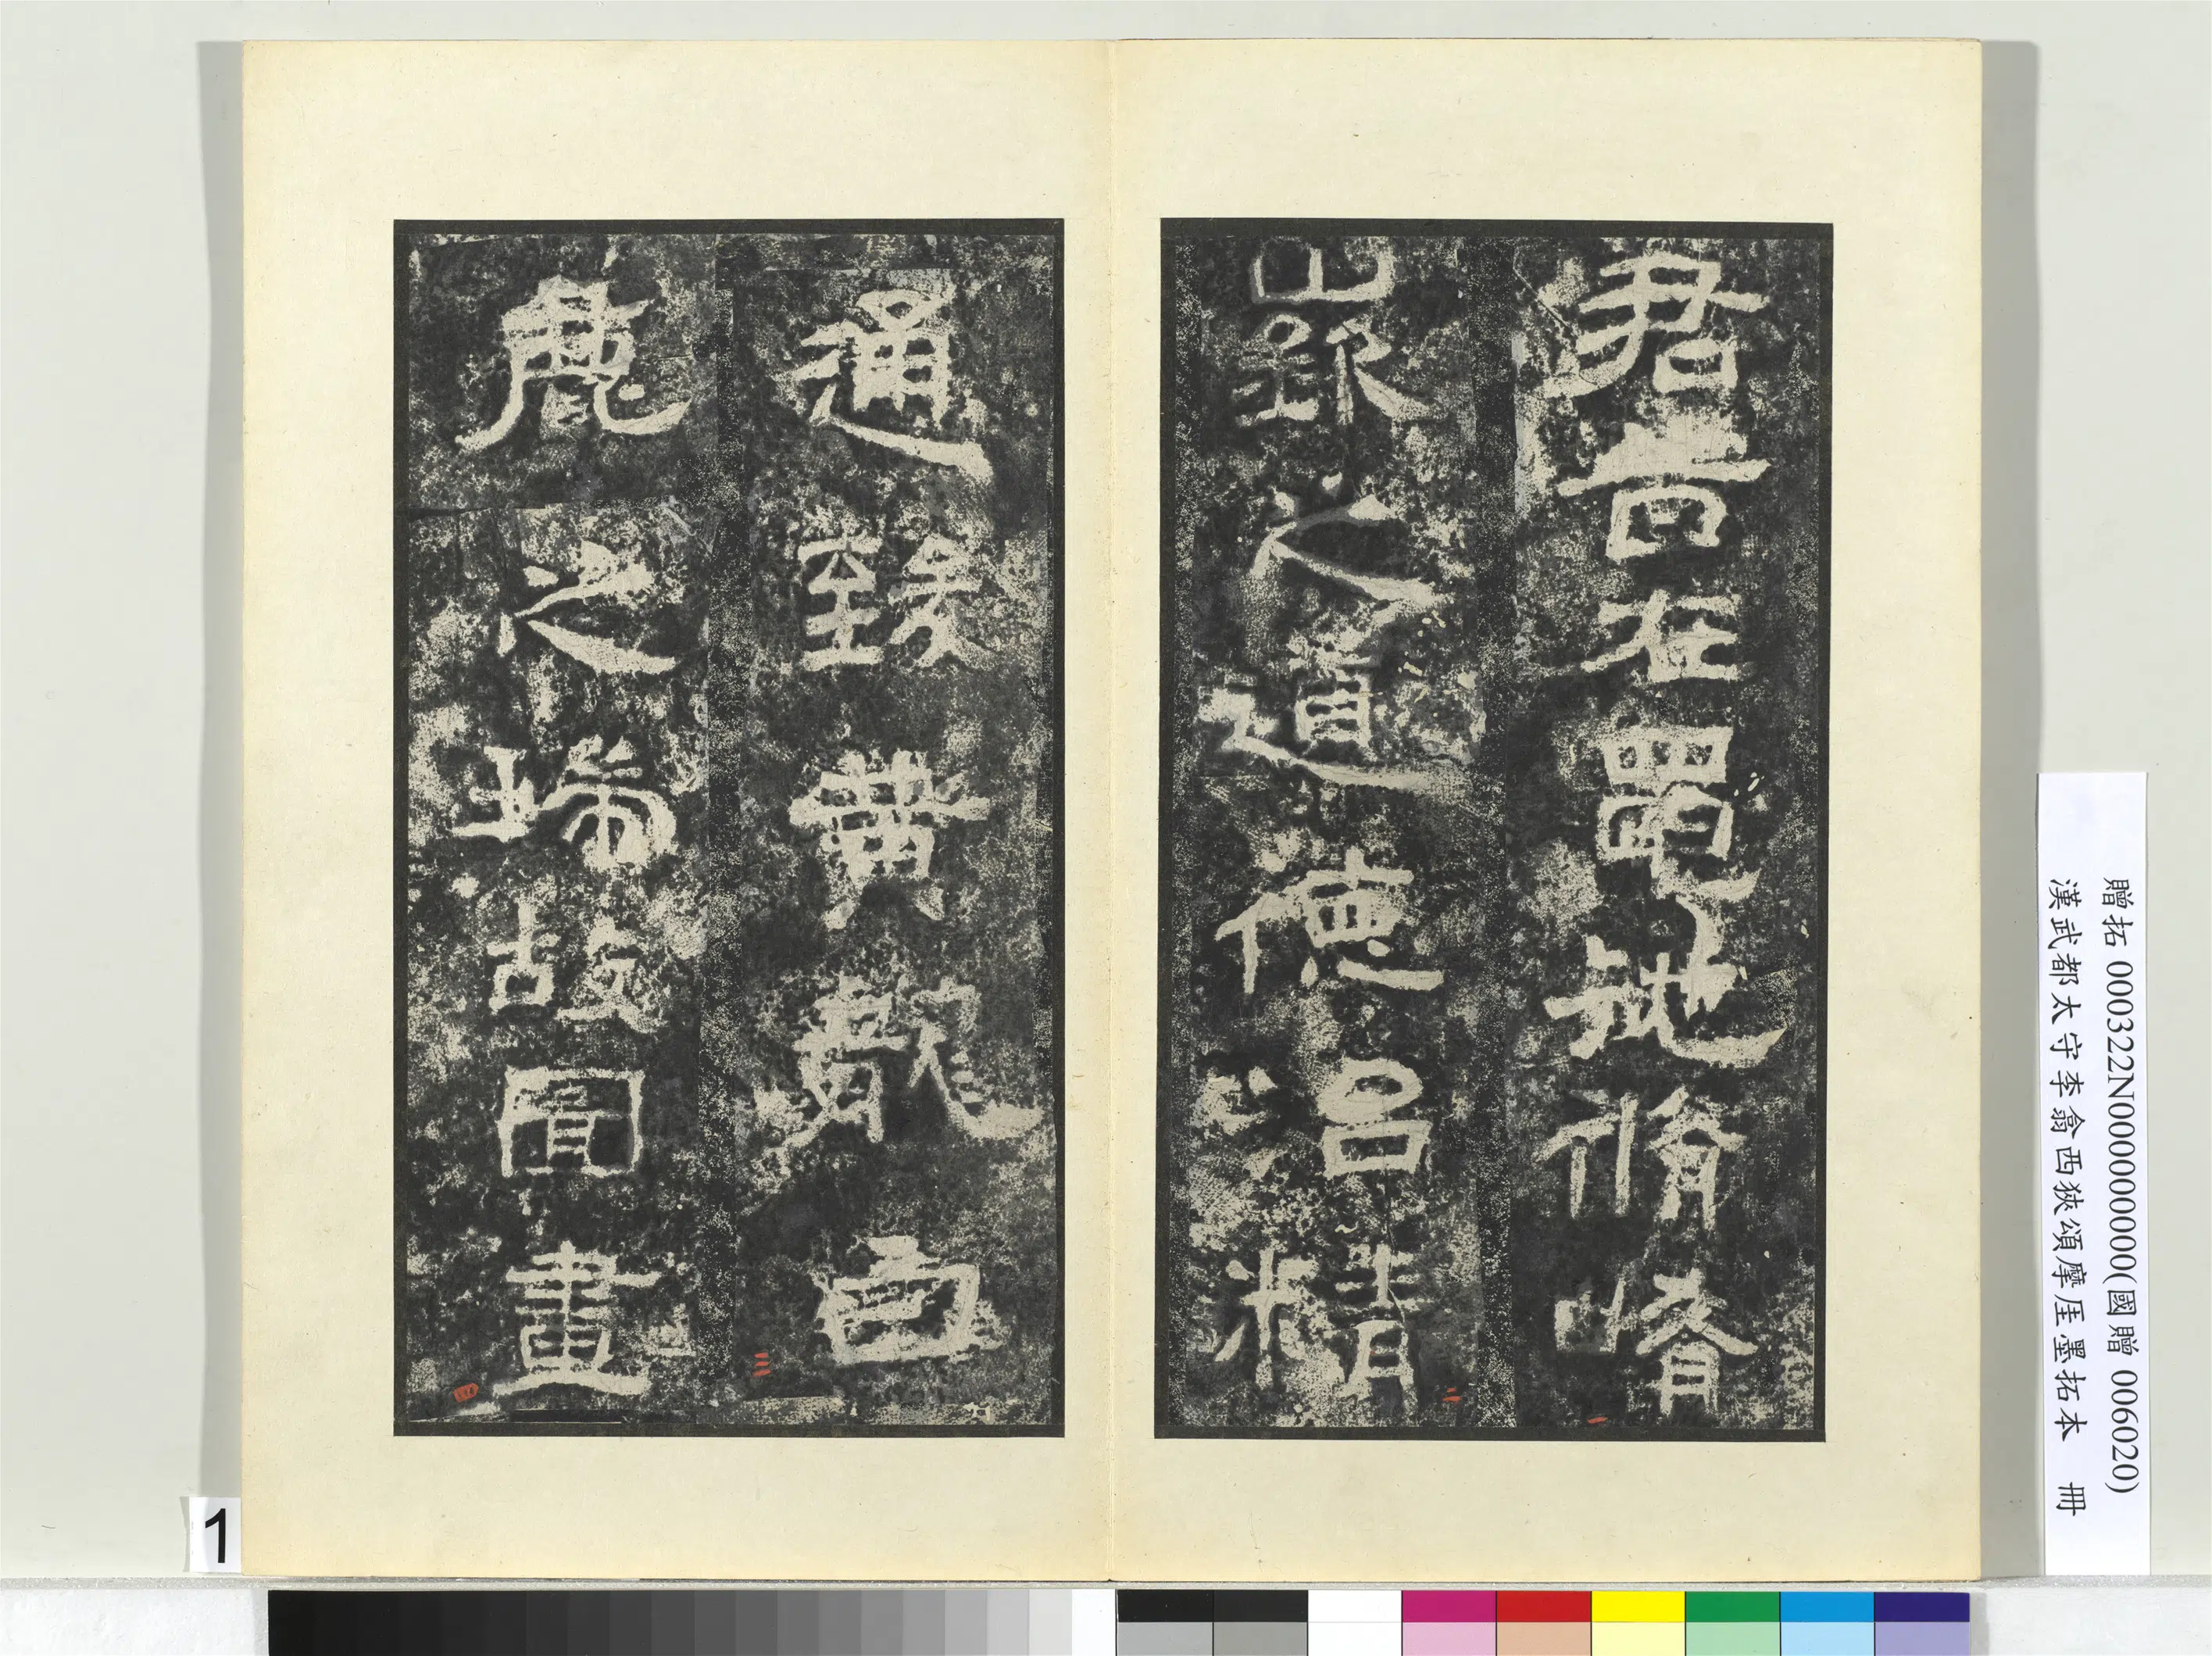 君昔在黽池脩崤
嶔之道德治精
通致黃龍白
鹿之瑞故圖畫
一
二
三
四
贈拓 000322N000000000(國贈 006020)
漢武都太守李翕西狹頌摩厓墨拓本 冊
1